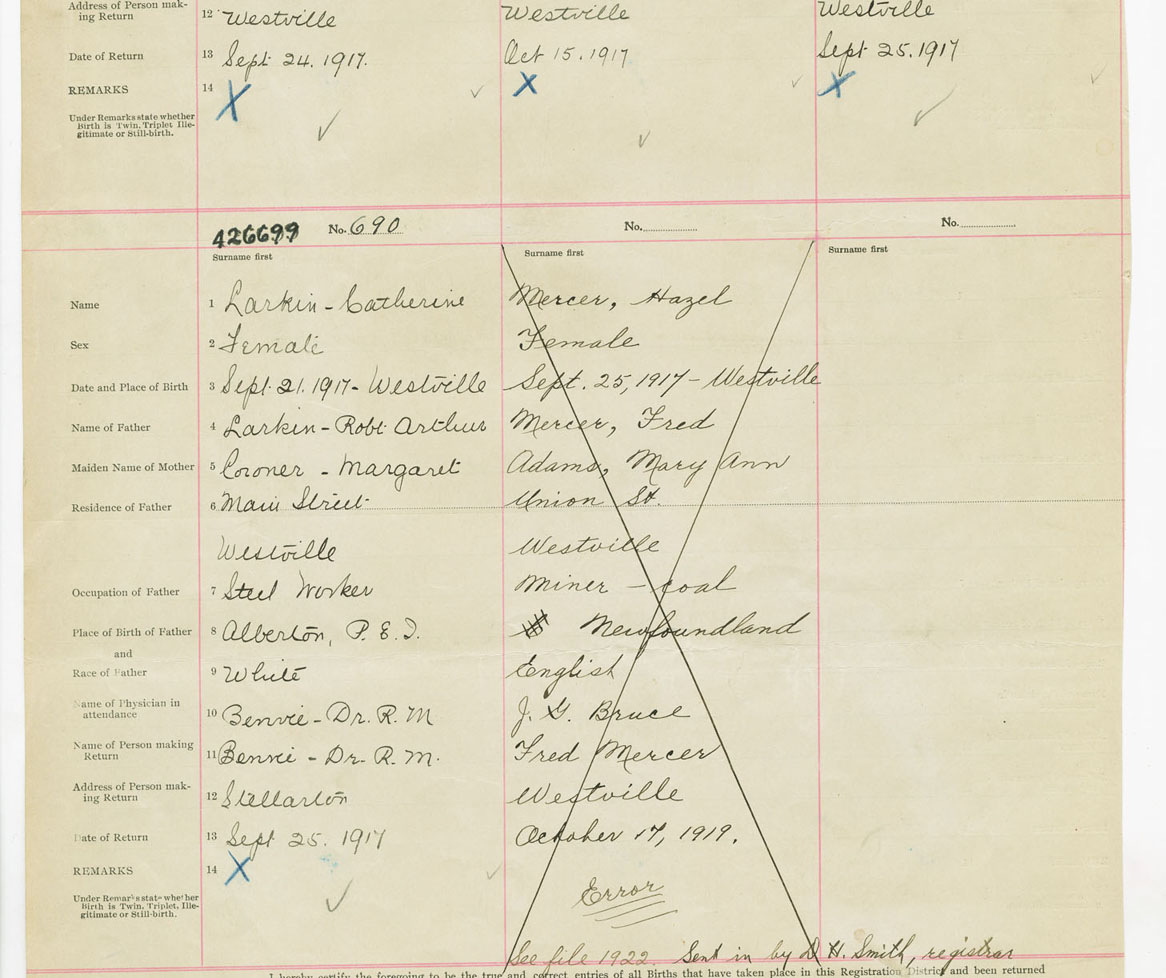 Address of Person mak-
ing Return
12 Westville
Westville
Westville
Date of Return
13 Sept 24. 1917.
Oct 15. 1917
Sept 25. 1917
REMARKS
14 X
X
X
Under Remarks state whether
Birth is Twin, Triplet, Ille-
gitimate or Still-birth.
426699 No. 690
No.
No.
Surname first
Surname first
Surname first
Name
1 Larkin - Catherine
Mercer, Hazel
Sex
2 Female
Female
Date and Place of Birth
3 Sept. 21. 1917 - Westville
Sept. 25, 1917 - Westville
Name of Father
4 Larkin - Robt Arthur
Mercer, Fred
Maiden Name of Mother
5 Coroner - Margaret
Adams, Mary Ann
Residence of Father
6 Main Street
Union St.
Westville
Westville
Occupation of Father
7 Steel Worker
Miner - coal
Place of Birth of Father
8 Alberton, P. E. I.
Newfoundland
and
Race of Father
9 White
English
Name of Physician in
attendance
10 Benvie - Dr. R. M
J. G. Bruce
Name of Person making
Return
11 Benvie - Dr. R. M.
Fred Mercer
Address of Person mak-
ing Return
12 Stellarton
Westville
Date of Return
13 Sept 25. 1917
October 17, 1919.
REMARKS
14 X
Under Remarks state whether
Birth is Twin, Triplet, Ille-
gitimate or Still-birth.
Error
See file 1922. Sent in by D H. Smith, registrar
I hereby certify the foregoing to be the true and correct entries of all Births that have taken place in this Registration District and been returned